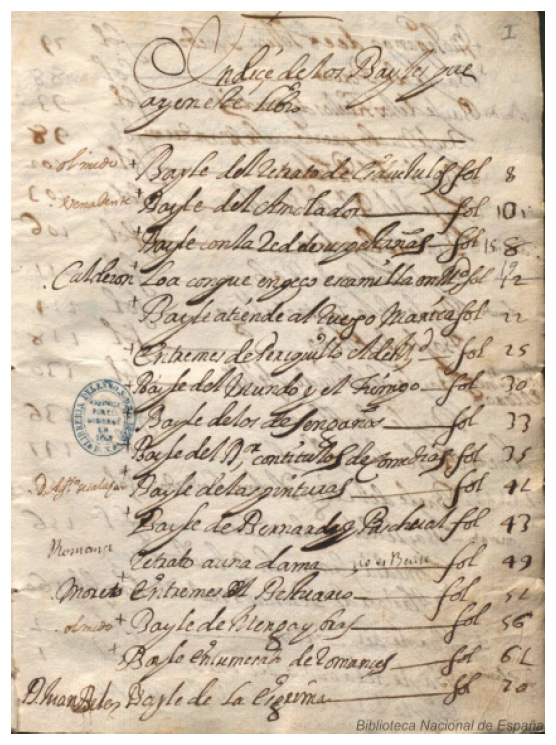 I
Indice de los Bayles que
ay en este libro
olmedo Bayle del Retrato de fol 8
Bayle del Amolador fol 10
Bayle con la Red de fol 15
Calderon Loa con que enpeço escamilla en fol 12
Bayle atiende al Ruego Marica fol 22
Entremes de Periquillo fol 25
Bayle del Mundo y el Tiempo fol 30
Bayle de los fol 33
Bayle del Br con titulos de comedias fol 35
Bayle de las pinturas fol 41
Bayle de Bernarda y Paschual fol 43
Retrato a una dama no es Baile fol 49
Moreto Entremes del Bestuario fol 51
olmedo Bayle de Menga y bras fol 56
Bayle en de Romances fol 61
D. Juan Bayle de La Esgrima fol 70
Biblioteca Nacional de España